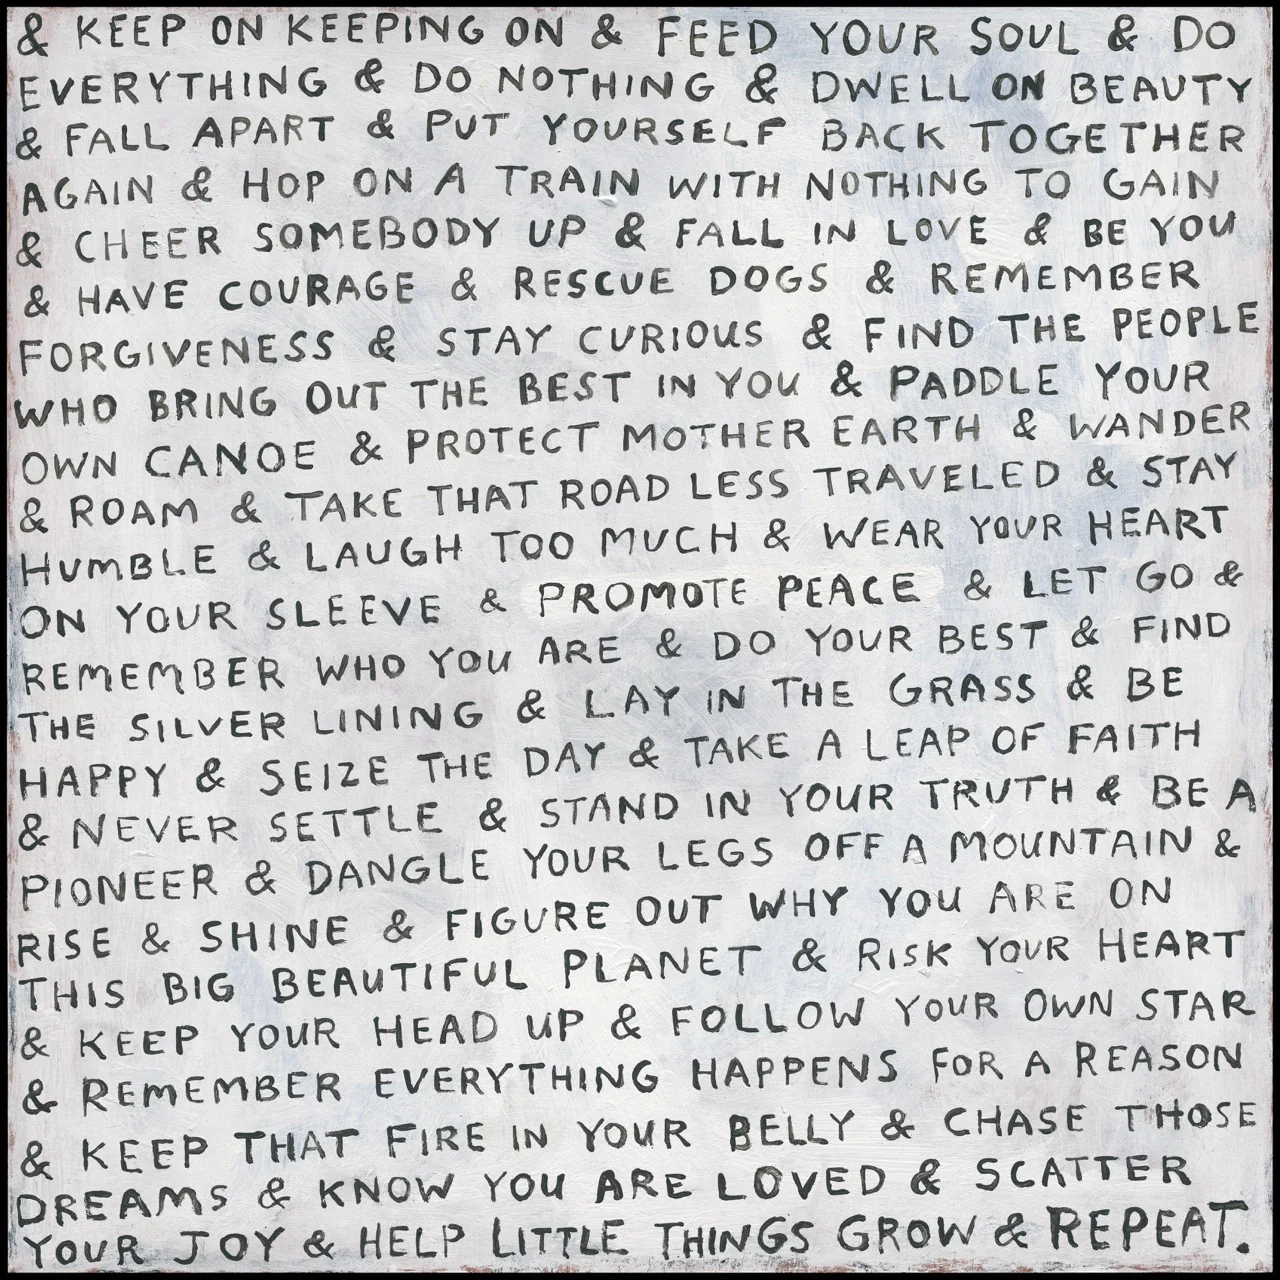 & KEEP ON KEEPING ON & FEED YOUR SOUL & DO
EVERYTHING & DO NOTHING & DWELL ON BEAUTY
& FALL APART & PUT YOURSELF BACK TOGETHER
AGAIN & HOP ON A TRAIN WITH NOTHING TO GAIN
& CHEER SOMEBODY UP & FALL IN LOVE & BE YOU
& HAVE COURAGE & RESCUE DOGS & REMEMBER
FORGIVENESS & STAY CURIOUS & FIND THE PEOPLE
WHO BRING OUT THE BEST IN YOU & PADDLE YOUR
OWN CANOE & PROTECT MOTHER EARTH & WANDER
& ROAM & TAKE THAT ROAD LESS TRAVELED & STAY
HUMBLE & LAUGH TOO MUCH & WEAR YOUR HEART
ON YOUR SLEEVE & PROMOTE PEACE & LET GO &
REMEMBER WHO YOU ARE & DO YOUR BEST & FIND
THE SILVER LINING & LAY IN THE GRASS & BE
HAPPY & SEIZE THE DAY & TAKE A LEAP OF FAITH
& NEVER SETTLE & STAND IN YOUR TRUTH & BE A
PIONEER & DANGLE YOUR LEGS OFF A MOUNTAIN &
RISE & SHINE & FIGURE OUT WHY YOU ARE ON
THIS BIG BEAUTIFUL PLANET & RISK YOUR HEART
& KEEP YOUR HEAD UP & FOLLOW YOUR OWN STAR
& REMEMBER EVERYTHING HAPPENS FOR A REASON
& KEEP THAT FIRE IN YOUR BELLY & CHASE THOSE
DREAMS & KNOW YOU ARE LOVED & SCATTER
YOUR JOY & HELP LITTLE THINGS GROW & REPEAT.